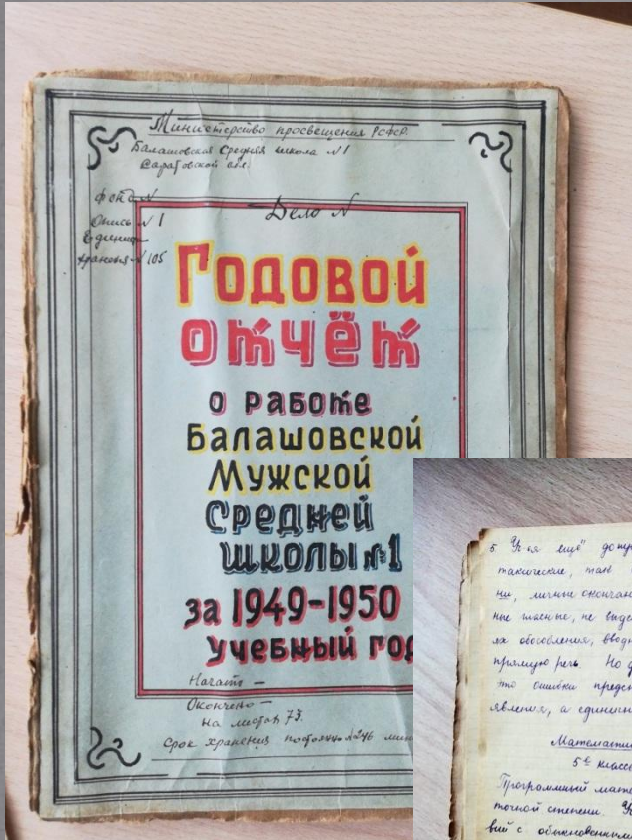 Министерство просвещения РСФСР.
Балашовская Средняя школа №1
Саратовской обл.
фонд №
Опись №1
Единиц
хранения №105
Дело №
Годовой
отчёт
о работе
Балашовской
Мужской
Средней
школы №1
за 1949-1950
учебный год
Начато —
Окончено —
на листах 73.
Срок хранения постоянно
5.
ещё" допу
тактические, так
ни, личные окончан
ные гласные, не выде
ях обособления, ввод
прямую речь. Но
что ошибки предс
явления, а единичн
Математи
5е класс
Программный мате
точной степени.
вий с обыкновенными